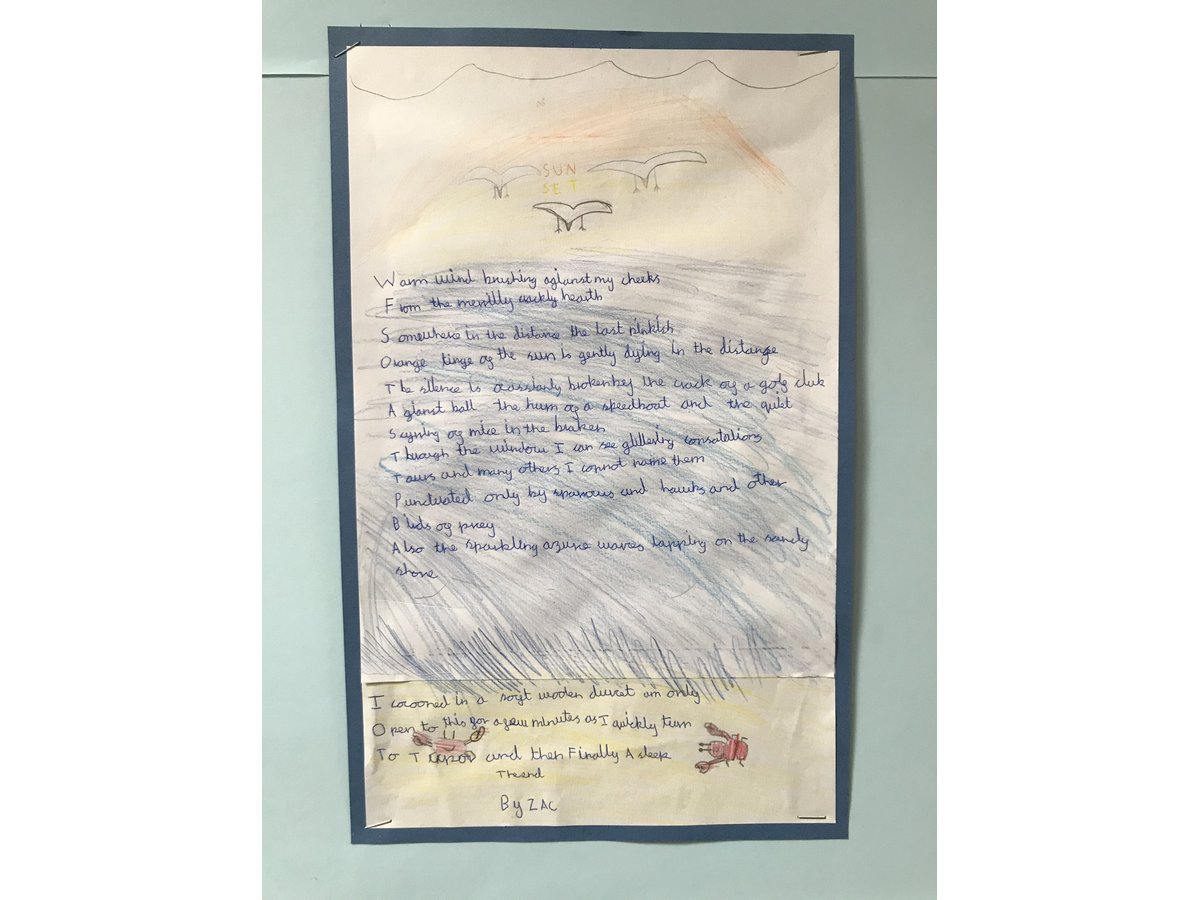 SUN
SET
Warm wind brushing agianst my cheeks
From the merrilly crackly hearth
Somewhere in the distance the last pinkish
Orange tinge of the sun is gently dying in the distange
The silence is ocassianly broken by the crack of a golf club
Agianst ball the hum of a speedboat and the quiet
Scyring of mice in the braken
Through the window I can see glittering consatations
Taurs and many others I connot name them
Punctuated only by sparrows and hawks and other
Birds of prey
Also the sparkling azure waves lapping on the sandy
shore
I cocooned in a soft woolen duvet am only
Open to this for a few minutes as I quickly turn
To Torpor and then Finally A sleep
The end
By ZAC